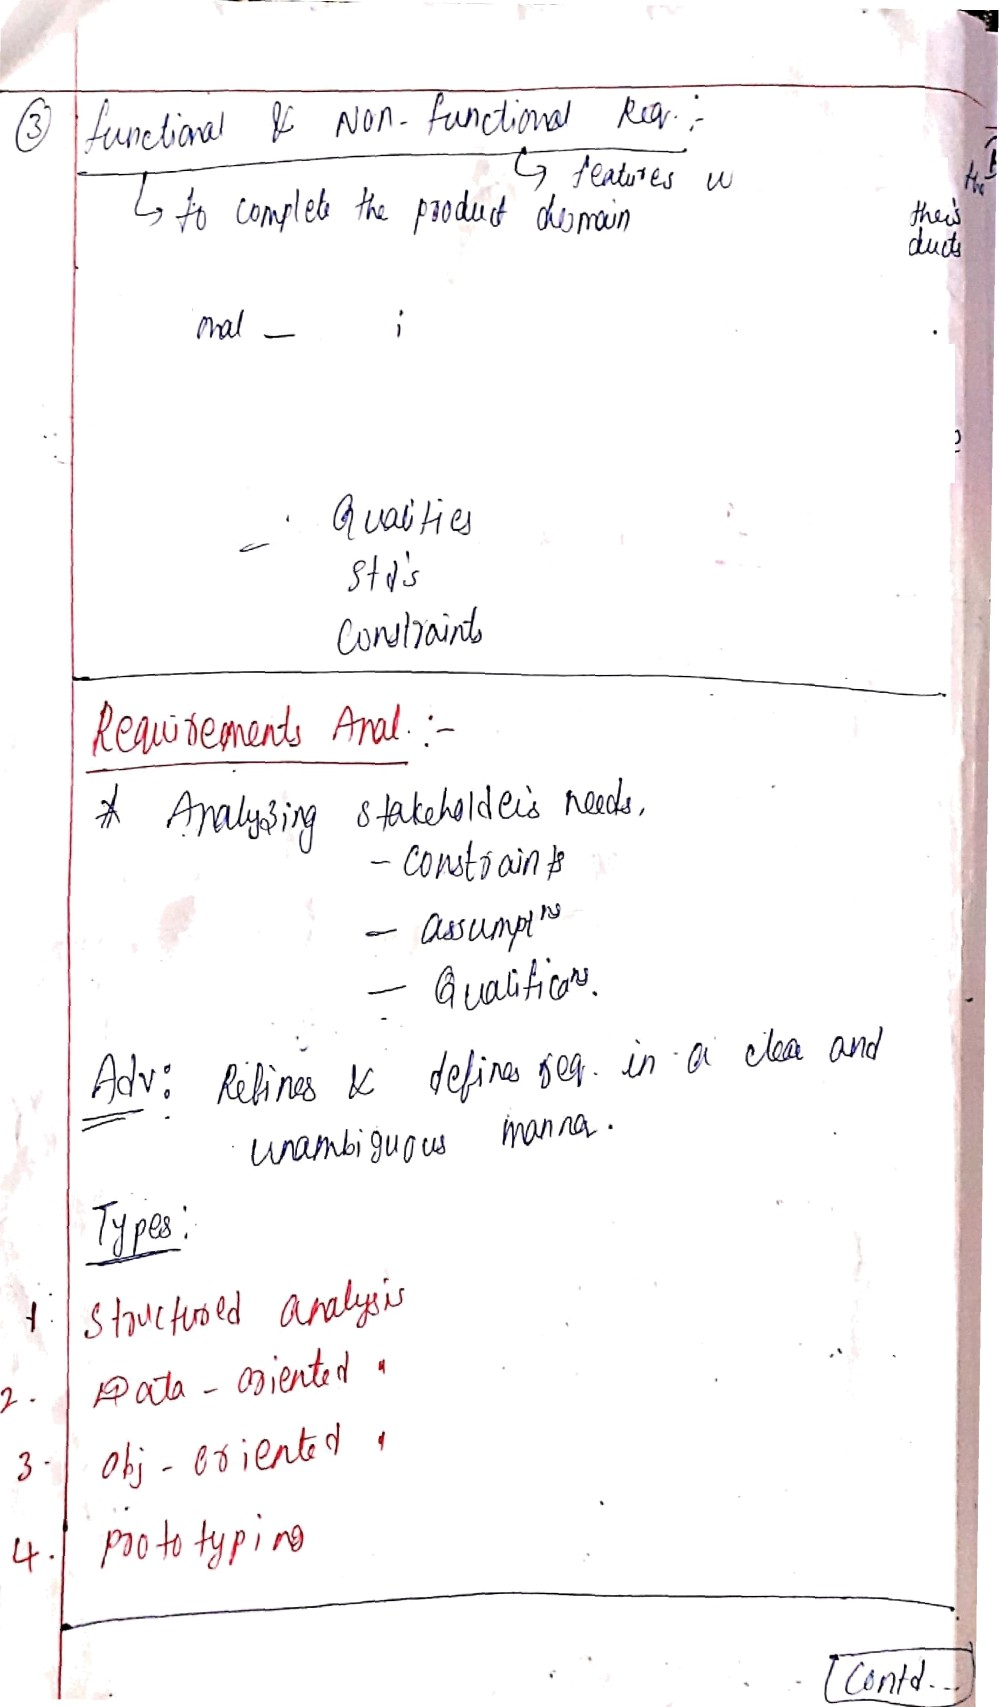 ③ functional & Non-functional Req. :-
↳ features w
the
↳ to complete the product domain
their
ducts
onal — ;
Qualities
Std's
Constraints
Requirements Anal. :-
* Analyzing stakeholder's needs,
- constraints
- assumptⁿˢ
- Qualificaⁿˢ.
Adv: Refines & defines req. in a clear and
unambiguous manner.
Types:
1. Structured analysis
2. Data - oriented "
3. Obj - oriented "
4. prototyping
Contd...